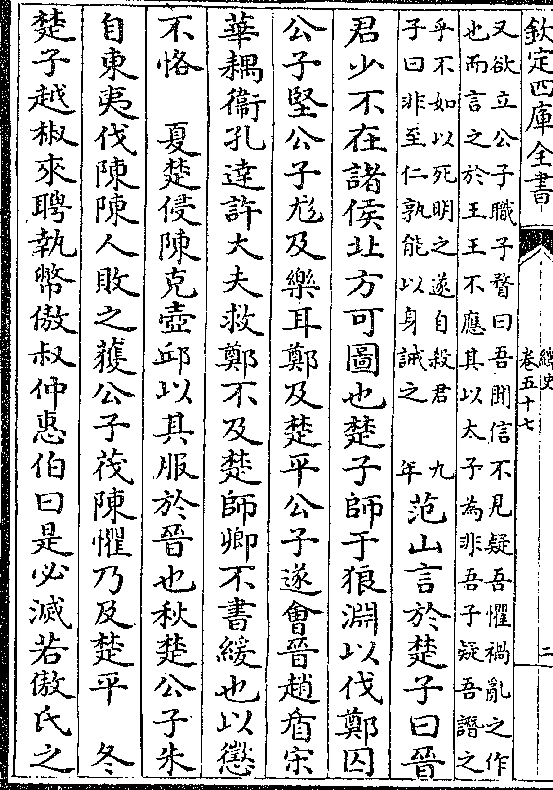 欽定四庫全書
繹史
卷五十七
二
又欲立公子職子瞀曰吾聞信不見疑吾懼禍亂之作
也而言之於王王不應其以太子為非吾子疑吾譖之
乎不如以死明之遂自殺君
子曰非至仁孰能以身誡之
九年
范山言於楚子曰晉
君少不在諸侯北方可圖也楚子師于狼淵以伐鄭囚
公子堅公子尨及樂耳鄭及楚平公子遂會晉趙盾宋
華耦衞孔達許大夫救鄭不及楚師卿不書緩也以懲
不恪　夏楚侵陳克壺邱以其服於晉也秋楚公子朱
自東夷伐陳陳人敗之獲公子茷陳懼乃及楚平　冬
楚子越椒來聘執幣傲叔仲惠伯曰是必滅若傲氏之